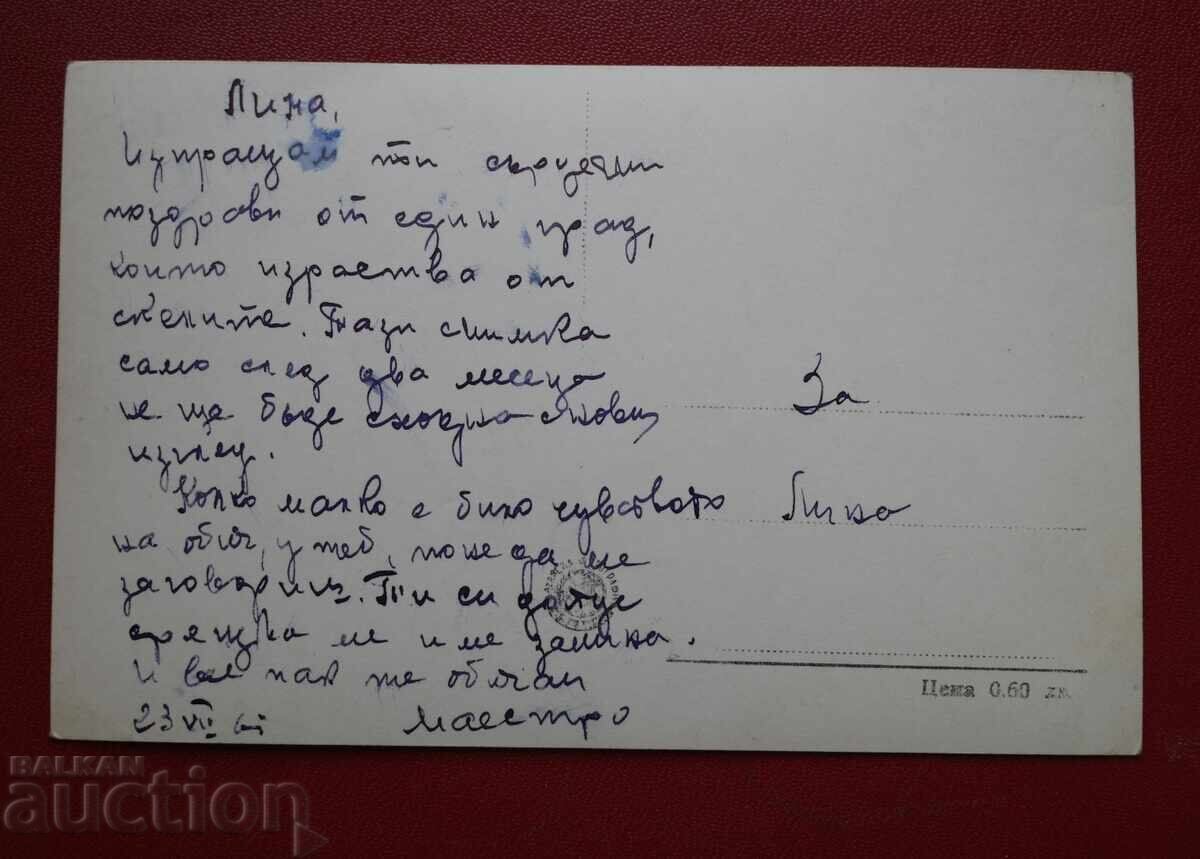 Лина,
Изпращам ти сърдечни
поздрави от един град,
които израства от
скелите. Тази снимка
само след два месеца
не ще бъде сходна с новия
изглед.
Колко малко е било чувството
на обич, у теб, поне да ме
заговориш. Ти си дотус
срещна ме и ме замина.
И все пак те обичам
23 VII
Маестро
За
Лина
Цена 0.60 лв.
BALKAN
auction